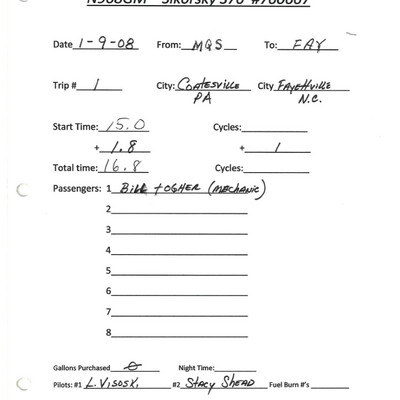 N908GM Sikorsky S76 #760607
Date 1-9-08 From: MQS To: FAY
Trip # 1 City: Coatesville PA City: Fayettville N.C.
Start Time: 15.0 Cycles:
+ 1.8 + 1
Total time: 16.8 Cycles:
Passengers: 1 Bill (mechanic)
2
3
4
5
6
7
8
Gallons Purchased 0 Night Time:
Pilots: #1 L. Visosky #2 Stacy Shead Fuel Burn #'s